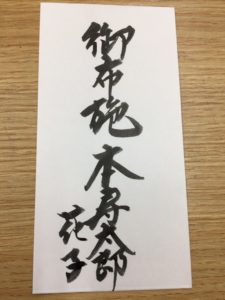 御布施 本寿太郎
花子